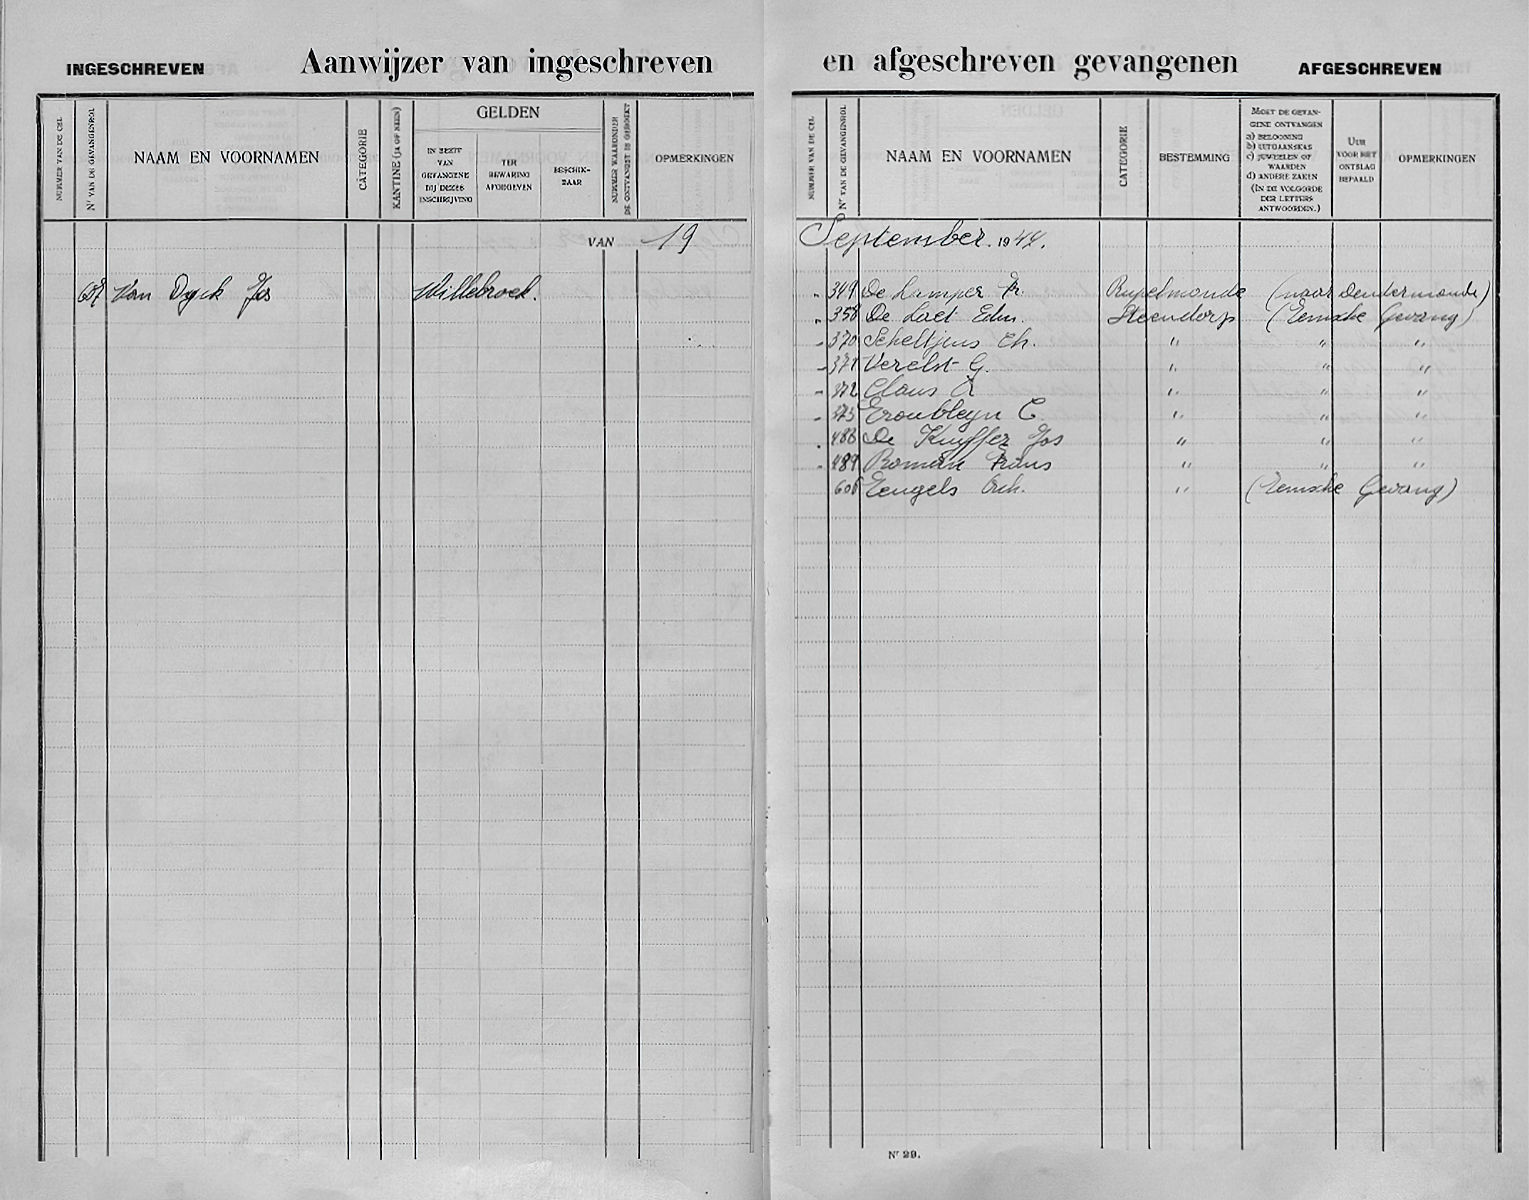 INGESCHREVEN Aanwijzer van ingeschreven en afgeschreven gevangenen AFGESCHREVEN
NUMMER VAN DE CEL
Nr VAN DE GEVANGENROL
NAAM EN VOORNAMEN
CATEGORIE
KANTINE (JA OF NEEN)
GELDEN
IN BEZIT
VAN
GEVANGENE
BIJ DEZES
INSCHRIJVING
TER
BEWARING
AFGEGEVEN
BESCHIK-
BAAR
NUMMER WAARONDER
DE ONTVANGST IS GEBOEKT
OPMERKINGEN
NUMMER VAN DE CEL
Nr VAN DE GEVANGENROL
NAAM EN VOORNAMEN
CATEGORIE
BESTEMMING
MOET DE GEVAN-
GENE ONTVANGEN
a) BELOONING
b) UITGAANSKAS
c) JUWEELEN OF
WAARDEN
d) ANDERE ZAKEN
(IN DE VOLGORDE
DER LETTERS
ANTWOORDEN.)
UUR
VOOR HET
ONTSLAG
BEPAALD
OPMERKINGEN
VAN 19 September 1944.
Van Dyck Jos Willebroek.
349 De Lamper Fr. Rupelmonde (naar Dendermonde)
358 De Laet Edm. Steendorp (Temsche Gevang)
370 Scheltjens Ch. " " "
371 Verelst G. " " "
372 Claus A " " "
373 Troubleyn C " " "
488 De Kuyffer Jos " " "
489 Roman Frans " " "
Tengels Orh. " (Temsche Gevang)
Nr 29.